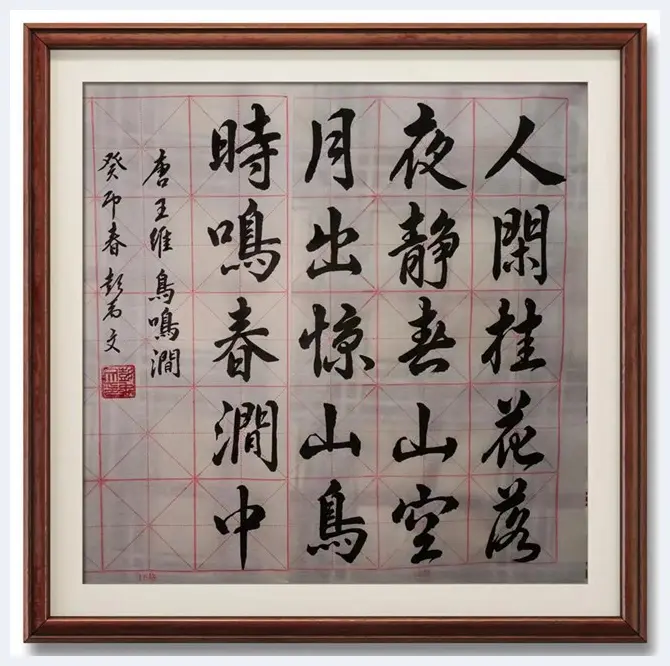 人閑桂花落
夜静春山空
月出惊山鳥
時鳴春澗中
唐王維鳥鳴澗
癸卯春彭文